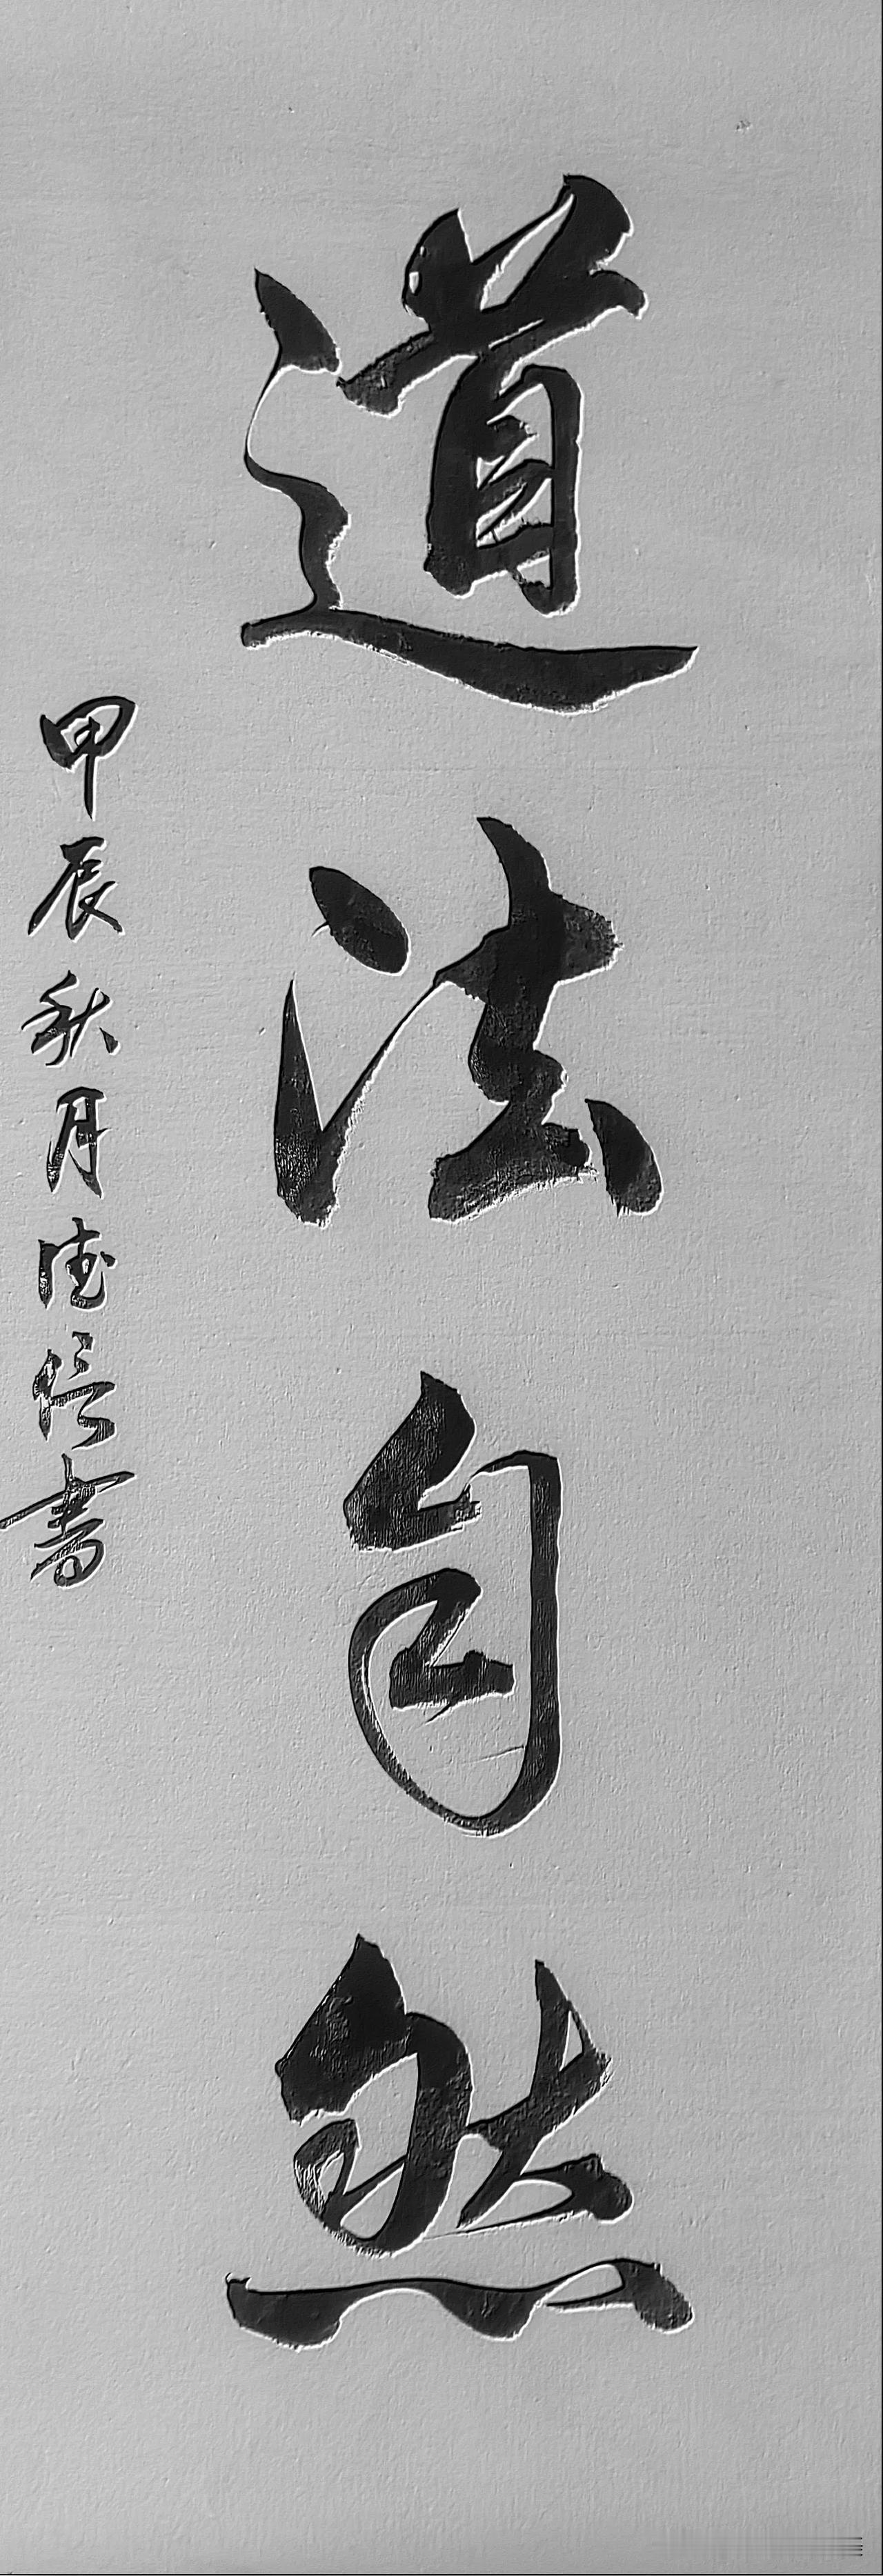 道法自然
甲辰秋月德信書